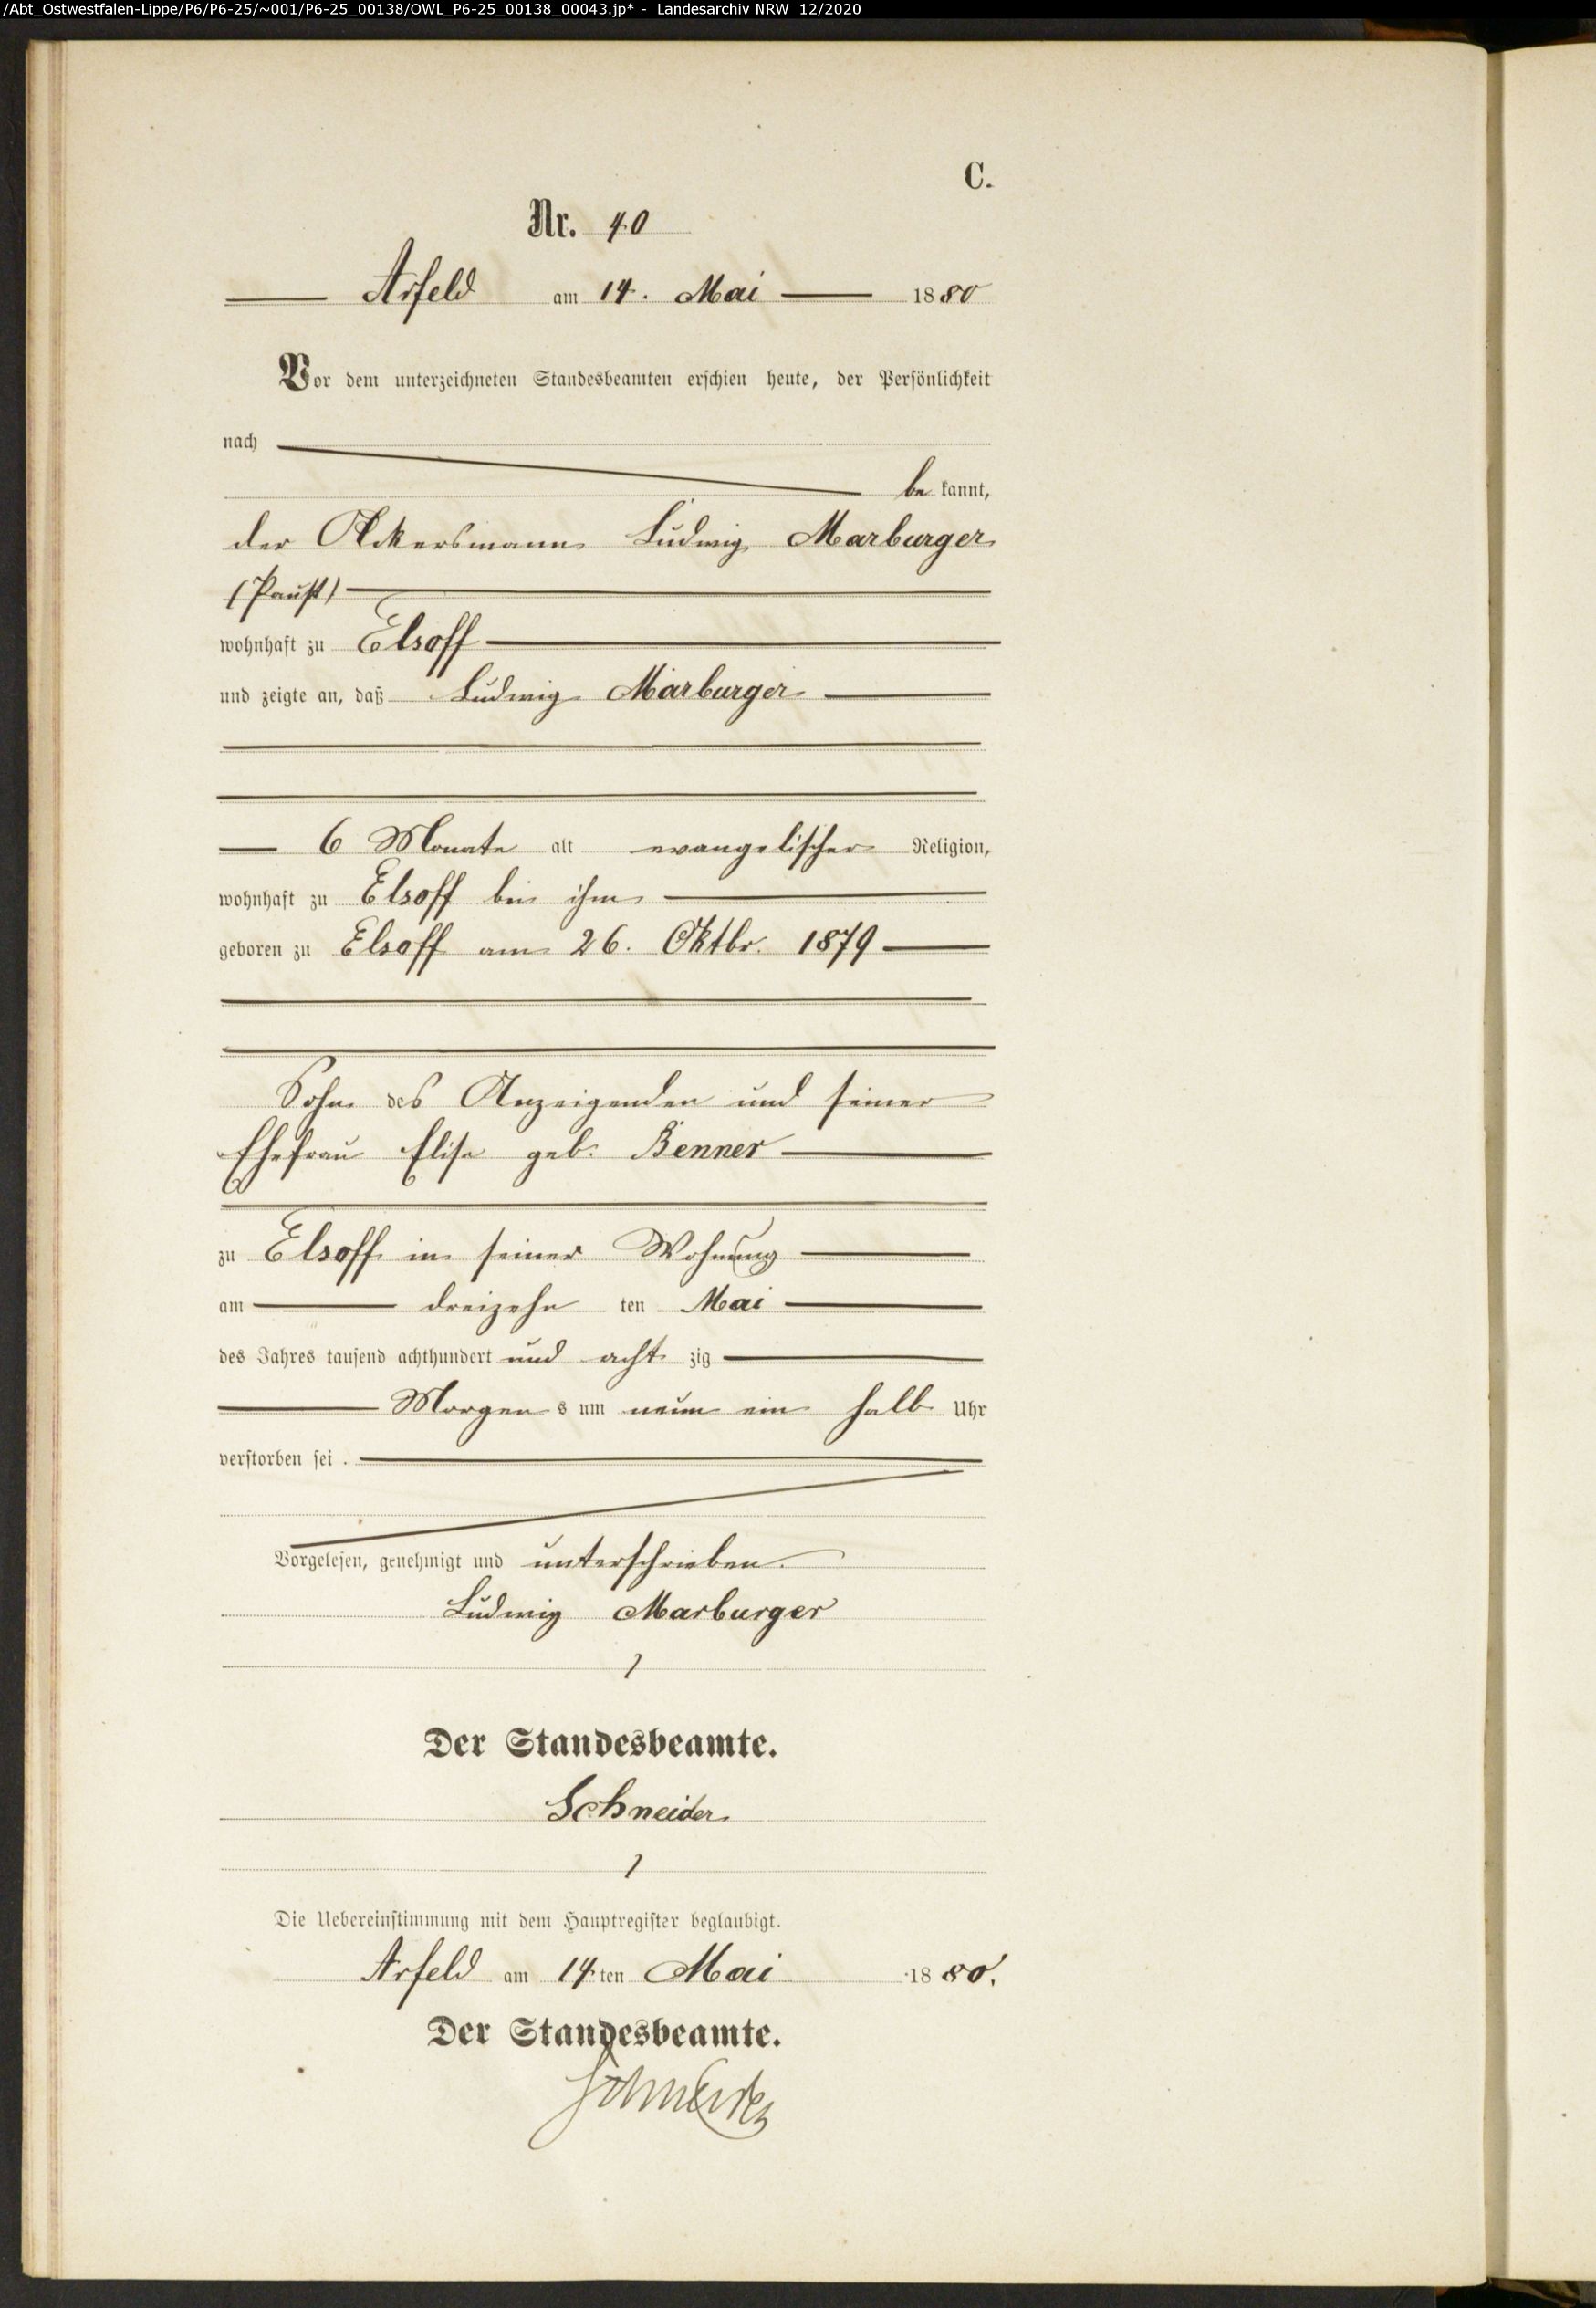 /Abt_Ostwestfalen-Lippe/P6/P6-25/~001/P6-25_00138/OWL_P6-25_00138_00043.jp* - Landesarchiv NRW 12/2020
C.
Nr. 40
Arfeld am 14. Mai 1880
Vor dem unterzeichneten Standesbeamten erschien heute, der Persönlichkeit
nach
be kannt,
der Ackersmann Ludwig Marburger
(Paust)
wohnhaft zu Elsoff
und zeigte an, daß Ludwig Marburger
6 Monate alt evangelischer Religion,
wohnhaft zu Elsoff bei ihm
geboren zu Elsoff am 26. Oktbr. 1879
Sohn des Anzeigenden und seiner
Ehefrau Elise geb. Benner
zu Elsoff in seiner Wohnung
am dreizehn ten Mai
des Jahres tausend achthundert und acht zig
Morgen s um neun ein halb Uhr
verstorben sei .
Vorgelesen, genehmigt und unterschrieben.
Ludwig Marburger
Der Standesbeamte.
Schneider
Die Uebereinstimmung mit dem Hauptregister beglaubigt.
Arfeld am 14 ten Mai 1880.
Der Standesbeamte.
Schneider